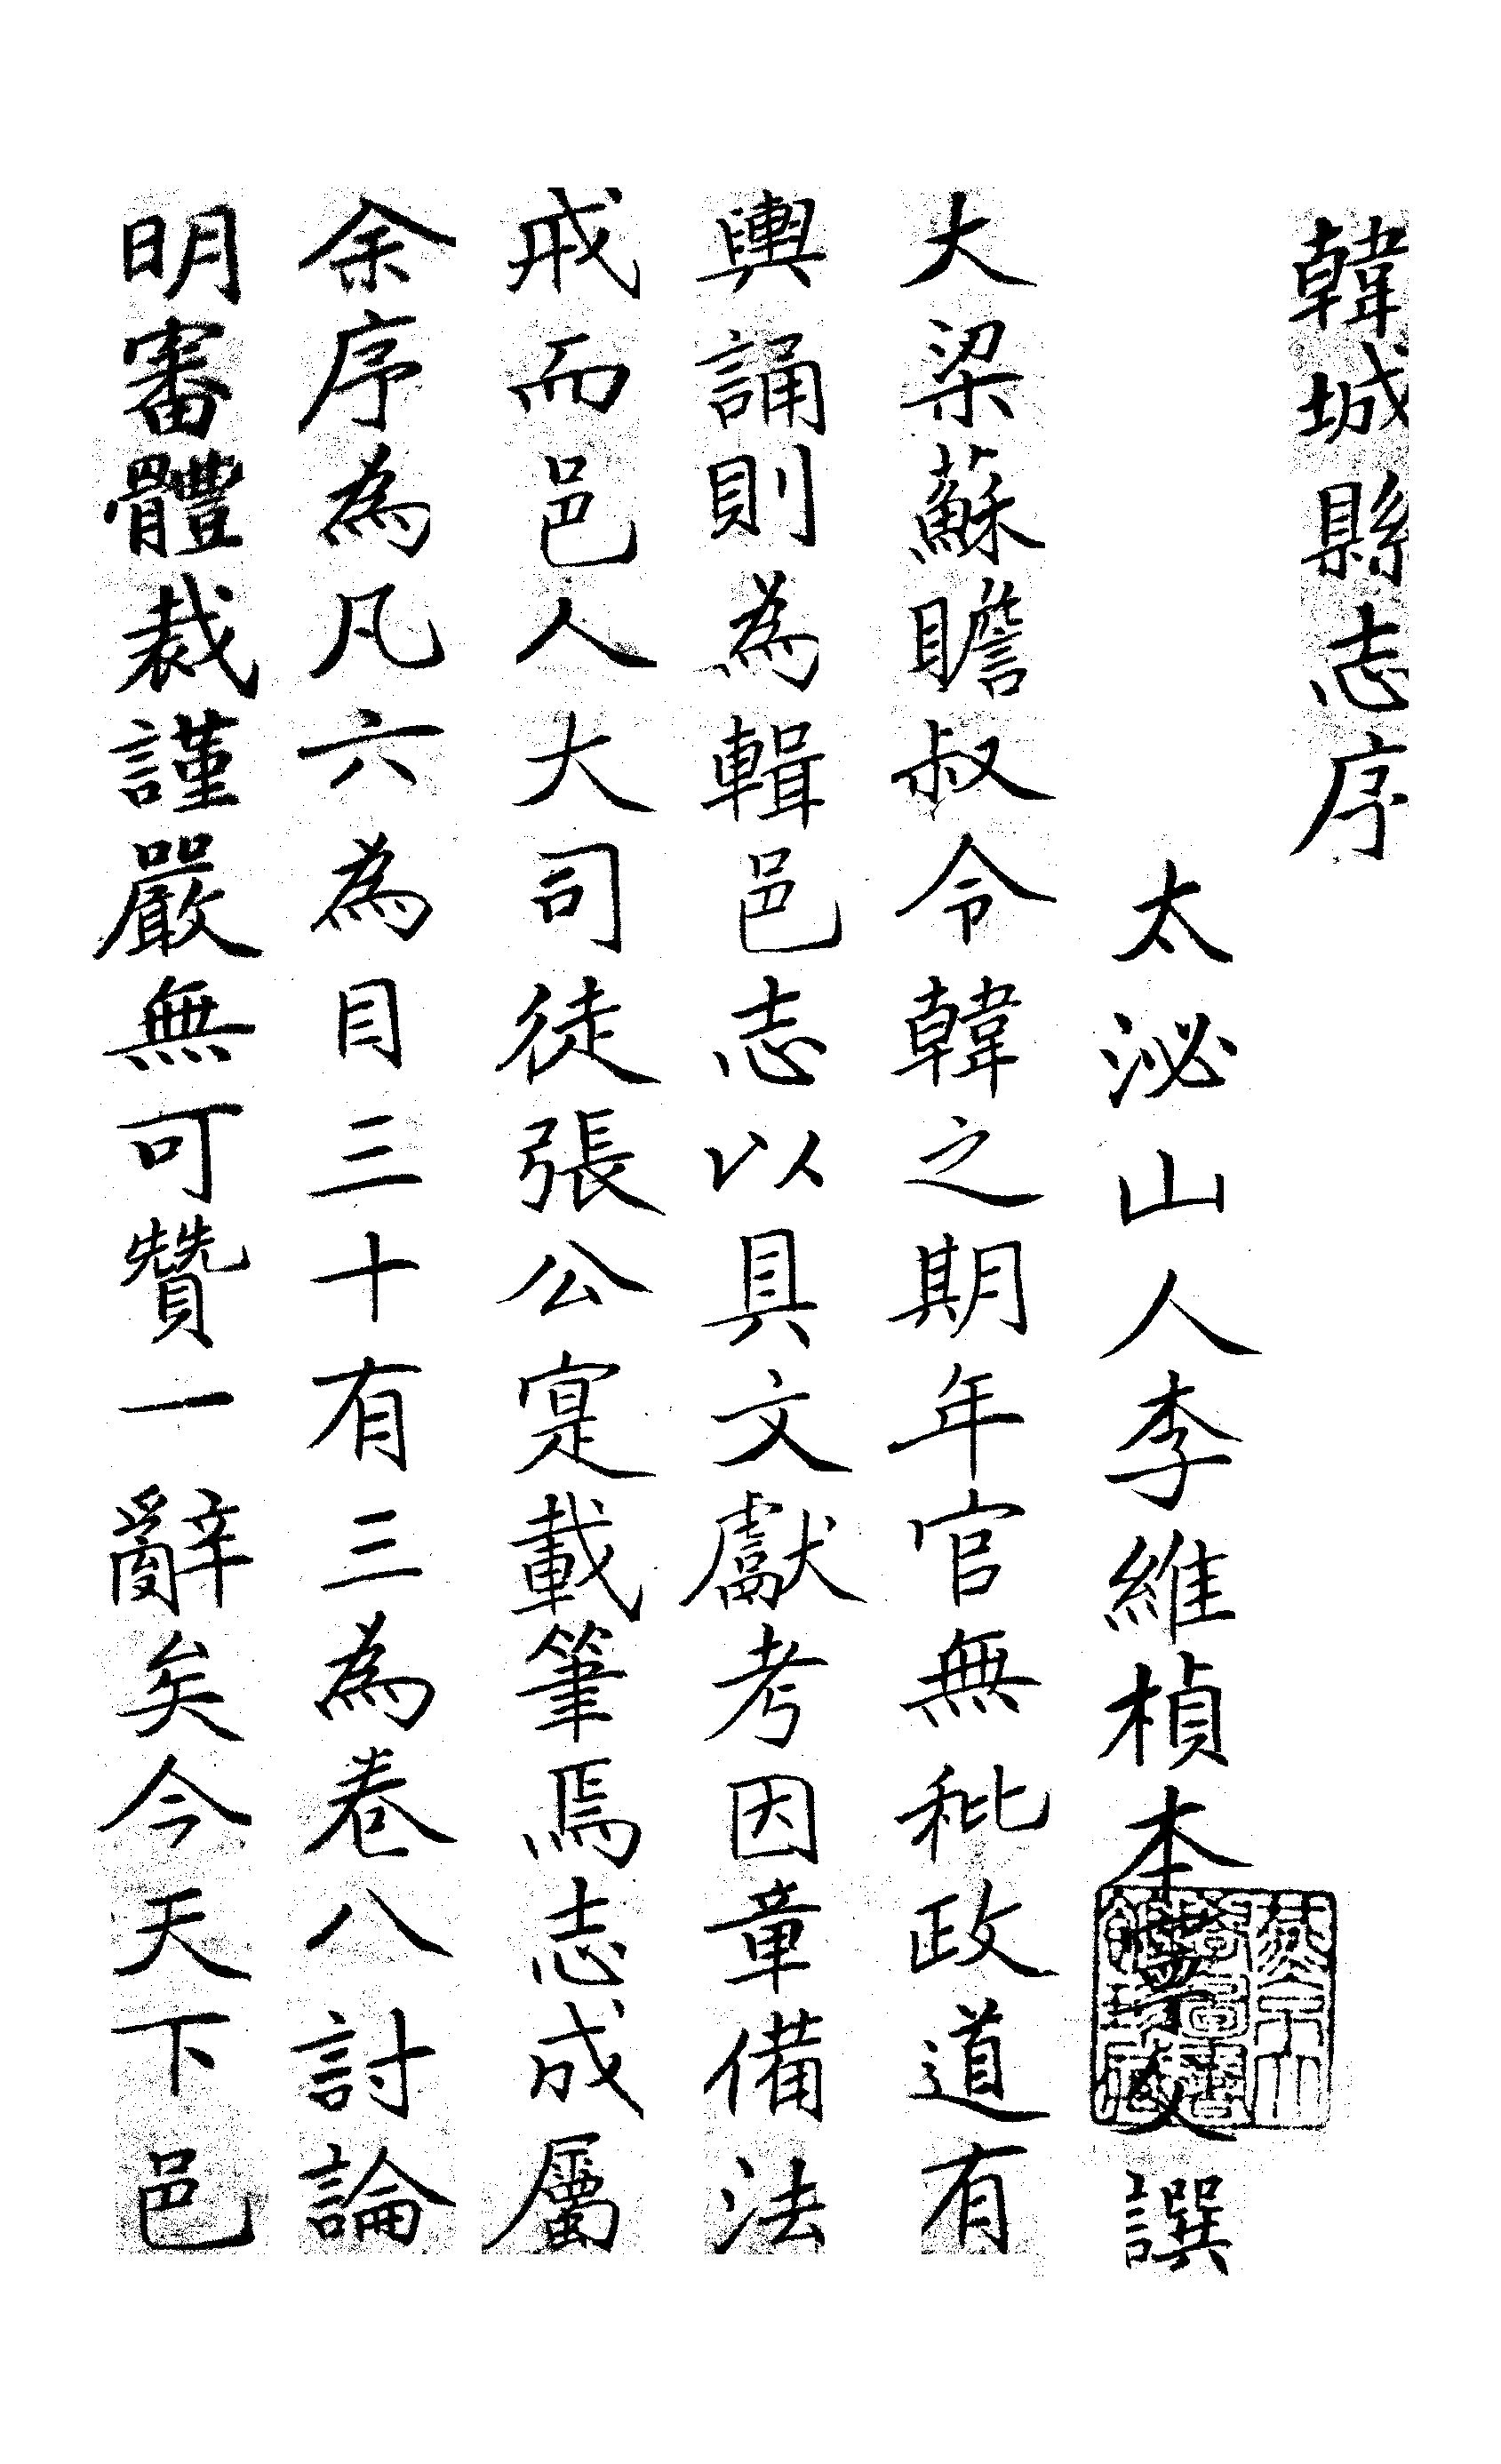 韓城縣志序
太泌山人李維楨本寧父譔
大梁蘇瞻叔令韓之期年官無秕政道有
輿誦則為輯邑志以具文獻考因章備法
戒而邑人大司徒張公寔載筆焉志成屬
余序為凡六為目三十有三為卷八討論
明審體裁謹嚴無可贊一辭矣今天下邑
燕京大學圖書館珍藏